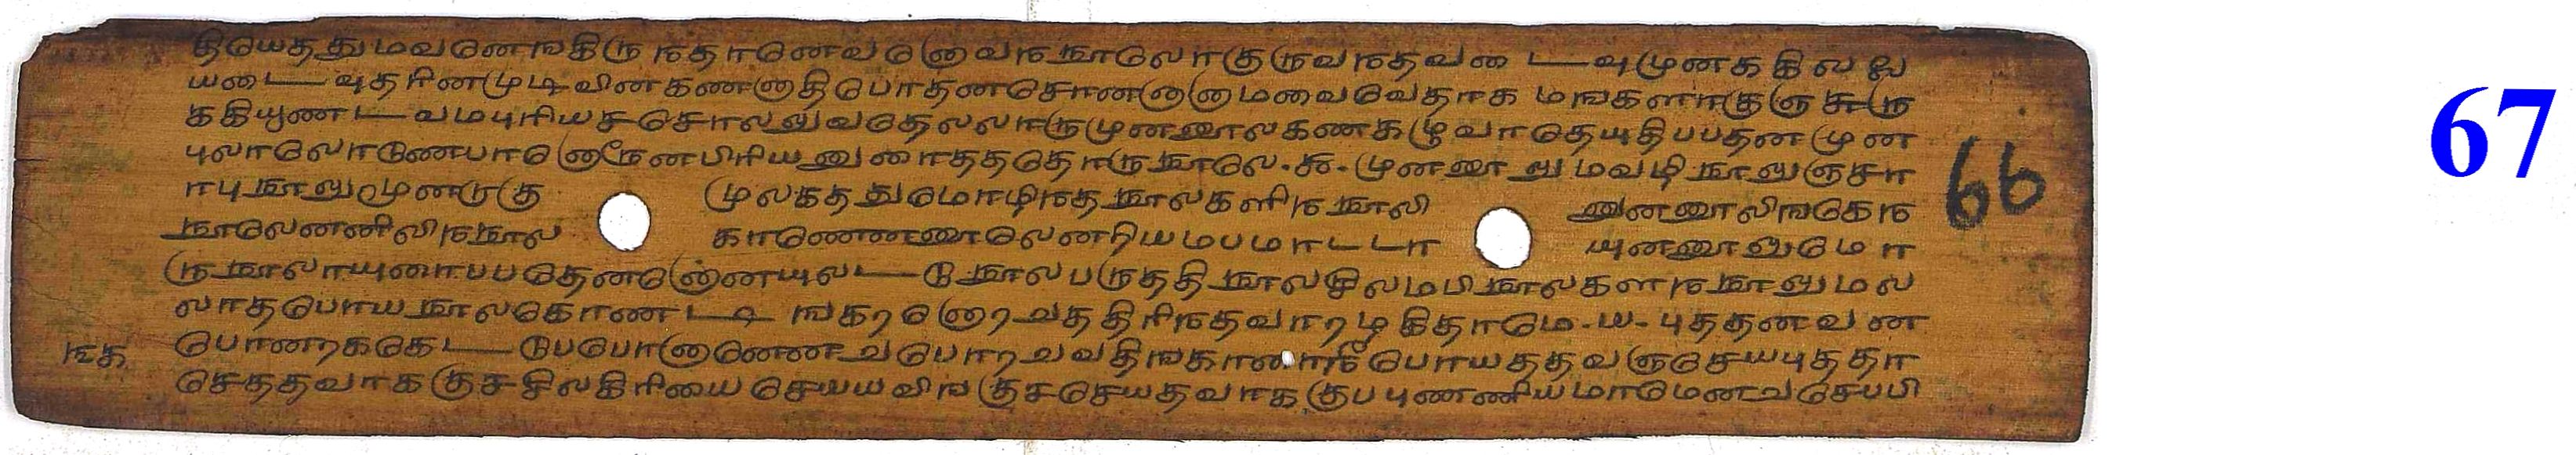 தியெதது மவனெஙகிரு நதானெவனெவந நூலொகுருவநதவடைவுமுனககிலலெ
யடைவுதரினமுடிவினகணணதிபோதனசோனனமவைவெதாக மஙகளாகுஞசுரு
ககியுணடவமபுரியசசொலலுவதெலலாருமுனனூலகணகழுவாதெயுதிபபதனமுன
புலாலொடுணபானெனெனபிரியனுரைததசதொருநூலெ.சு.முனனூலுமவழிநூலுஞசா
ரபுநூலுமூனறுகு முலகததுமொழிநதநூலகளிநநூலி னுனனூலிஙகெந
நூலெனனிலிநநூல காணெனனூலெனரியமபமாடடா யுனனூலுமொ
ருநூலாயுரைபபதெனனெனையுலடடுநூலபருததிநூலசிலமபிநூலகளநநூலுமல
லாதபொயநூலகொணடிஙகரனெரசததிரிநதவாரழகிதாமெ.ய.புததனவண
பொனரககெடடுபபொனணெணசபொரசவதிஙகானாரீபொயததவஞசெயபுததா
செததவாககுசசிலகிரியை செயயவிஙகுசசெயதவாககுபபுணணியமாமெனசசெபபி
ஙக
66
67